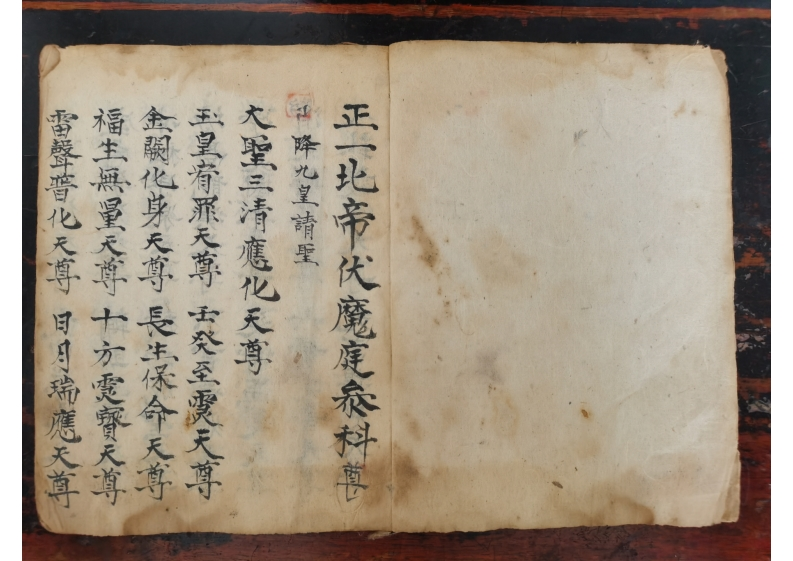 正一北帝伏魔庭叅科尊
降九皇請聖
大聖三清應化天尊
玉皇宥罪天尊 壬癸至靈天尊
金闕化身天尊 長生保命天尊
福生無量天尊 十方靈寶天尊
雷聲普化天尊 日月瑞應天尊